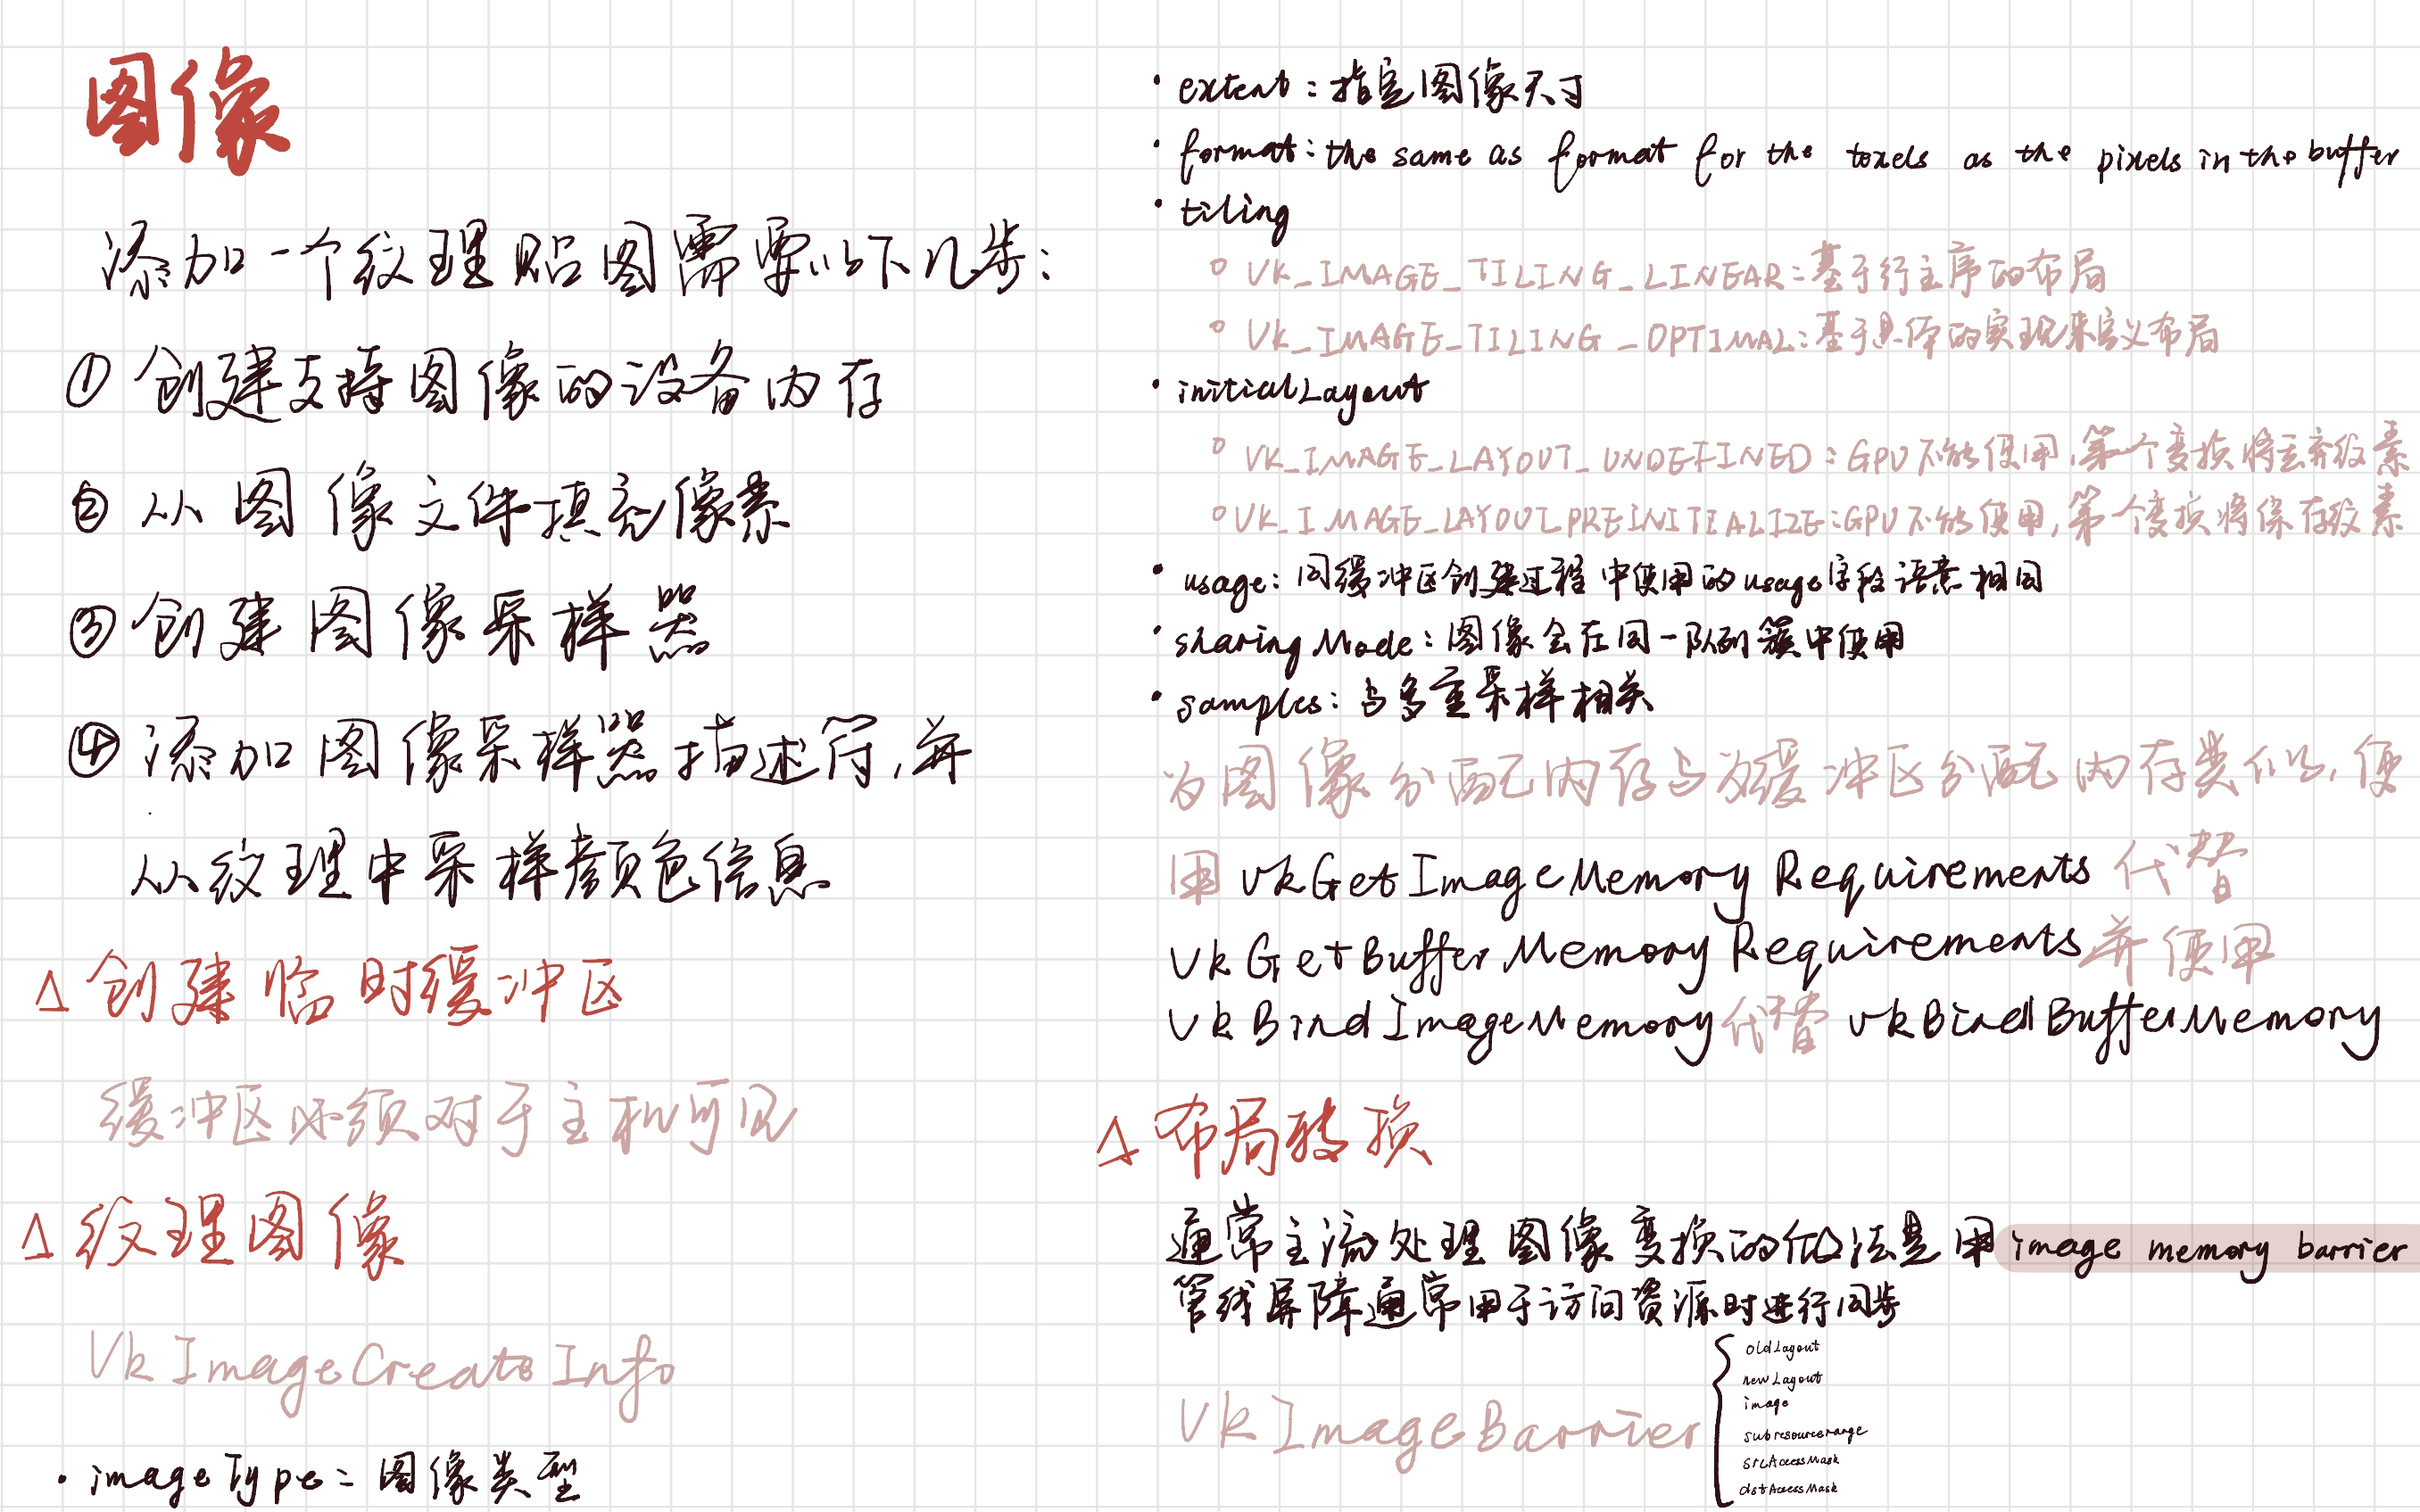 图像
添加一个纹理贴图需要以下几步：
① 创建支持图像的设备内存
② 从图像文件填充像素
③ 创建图像采样器
④ 添加图像采样器描述符，并
从纹理中采样颜色信息
△ 创建临时缓冲区
缓冲区必须对于主机可见
△ 纹理图像
VkImageCreateInfo
· imageType：图像类型
· extent：指定图像尺寸
· format：the same as format for the texels as the pixels in the buffer
· tiling
○ VK_IMAGE_TILING_LINEAR：基于行主序的布局
○ VK_IMAGE_TILING_OPTIMAL：基于具体的实现来定义布局
· initialLayout
○ VK_IMAGE_LAYOUT_UNDEFINED：GPU不能使用，第一个变换将丢弃纹素
○ VK_IMAGE_LAYOUT_PREINITIALIZE：GPU不能使用，第一个变换将保存纹素
· usage：同缓冲区创建过程中使用的usage字段语意相同
· sharingMode：图像会在同一队列簇中使用
· samples：与多重采样相关
为图像分配内存与为缓冲区分配内存类似，使
用 vkGetImageMemoryRequirements 代替
VkGetBufferMemoryRequirements 并使用
VkBindImageMemory 代替 vkBindBufferMemory
△ 布局转换
通常主流处理图像变换的做法是用 image memory barrier
管线屏障通常用于访问资源时进行同步
VkImageBarrier
oldLayout
newLayout
image
subresourcerange
srcAccessMask
dstAccessMask